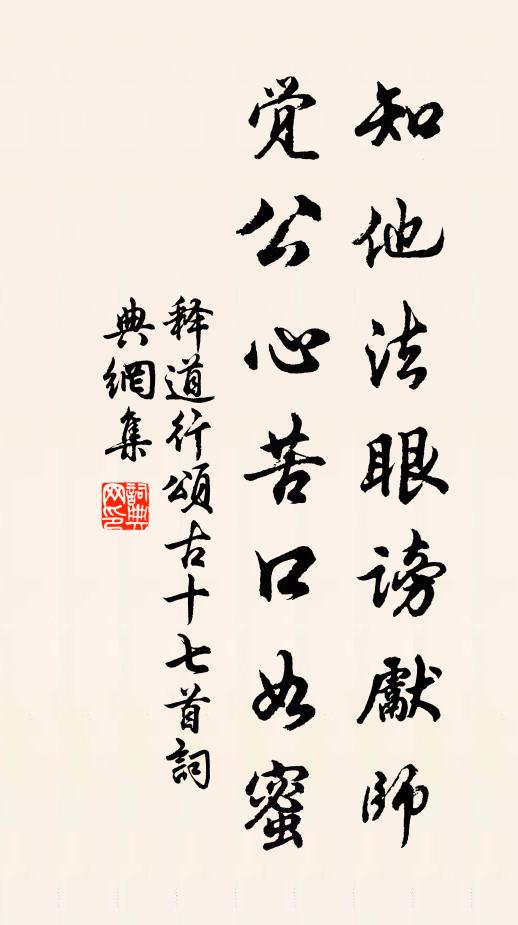 知他法眼谤獻师
覚公心苦口如蜜
释道行頌古十七首詞
典網集
詞典网印